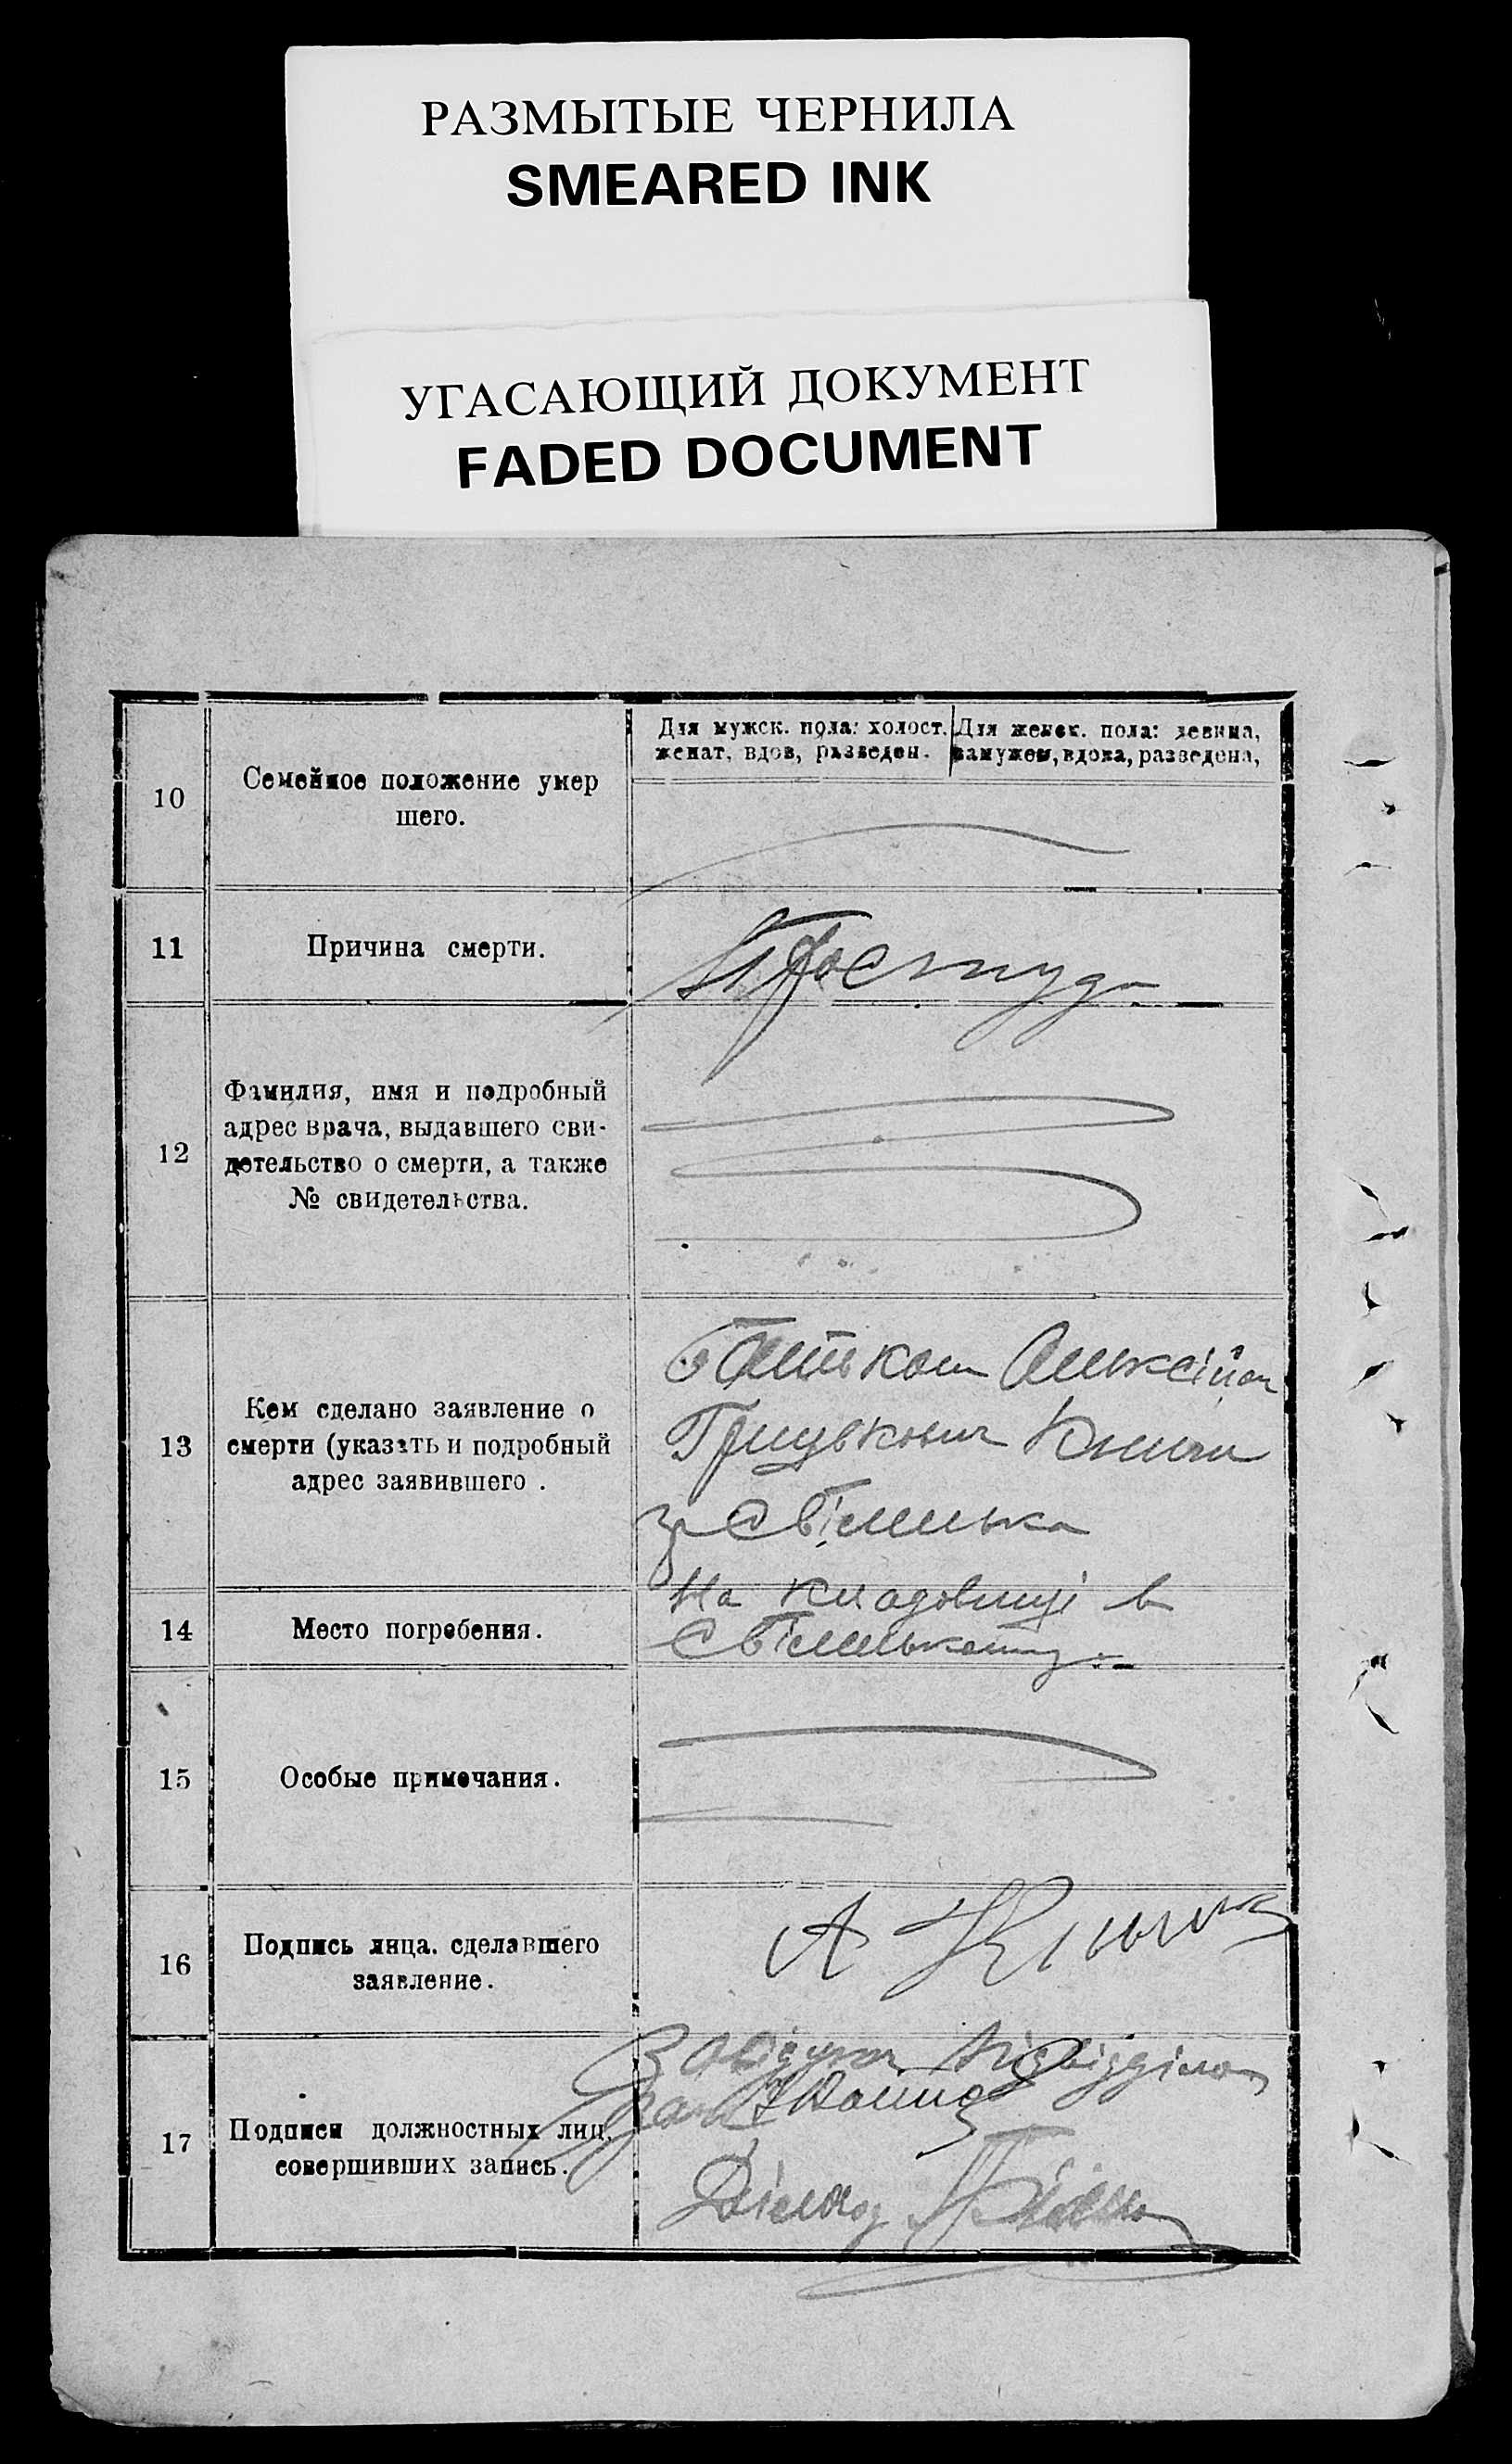 РАЗМЫТЫЕ ЧЕРНИЛА
SMEARED INK
УГАСАЮЩИЙ ДОКУМЕНТ
FADED DOCUMENT
10
Семейное положение умер
шего.
Для мужск. пола: холост.
женат, вдов, разведен.
Для женск. пола: девица,
замужем, вдова, разведена,
11
Причина смерти.
Простуда
12
Фамилия, имя и подробный
адрес врача, выдавшего сви-
детельство о смерти, а также
№ свидетельства.
13
Кем сделано заявление о
смерти (указать и подробный
адрес заявившего .
Батьком
з с
14
Место погребения.
На кладовищі в
с
15
Особые примечания.
16
Подпись лица. сделавшего
заявление.
А
17
Подписи должностных лиц,
совершивших запись.
Завідуюч
Діловод